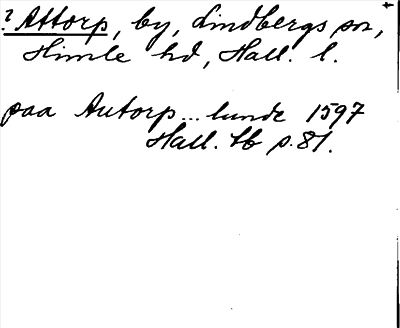 ? Attorp, by, Lindbergs sn,
Himle hd, Hall. l.
paa Autorp... lunde 1597
Hall. tb p. 81.